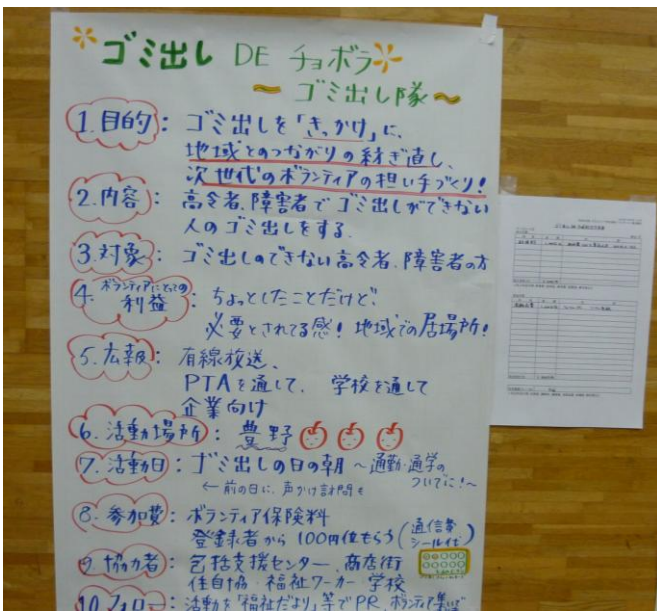 ゴミ出し DE チョボラ
〜ゴミ出し隊〜
1.目的: ゴミ出しを「きっかけ」に、
地域とのつながりの紡ぎ直し、
次世代のボランティアの担い手づくり!
2.内容: 高令者、障害者でゴミ出しができない
人のゴミ出しをする.
3.対象: ゴミ出しのできない高令者、障害者の方
4.ボランティアにとっての利益: ちょっとしたことだけど、
必要とされてる感! 地域での居場所!
5.広報: 有線放送、
PTAを通して、 学校を通して
企業向け
6.活動場所: 豊野
7.活動日: ゴミ出しの日の朝 〜通勤・通学の
ついでに!〜
←前の日に、声かけ訪問も
8.参加費: ボランティア保険料
登録者から 100円位もらう(通信費
シール代)
9.協力者: 包括支援センター、商店街
住自協・福祉ワーカー 学校
10.フォロー: 活動を「福祉だより」等でPR、ボランティア集いで